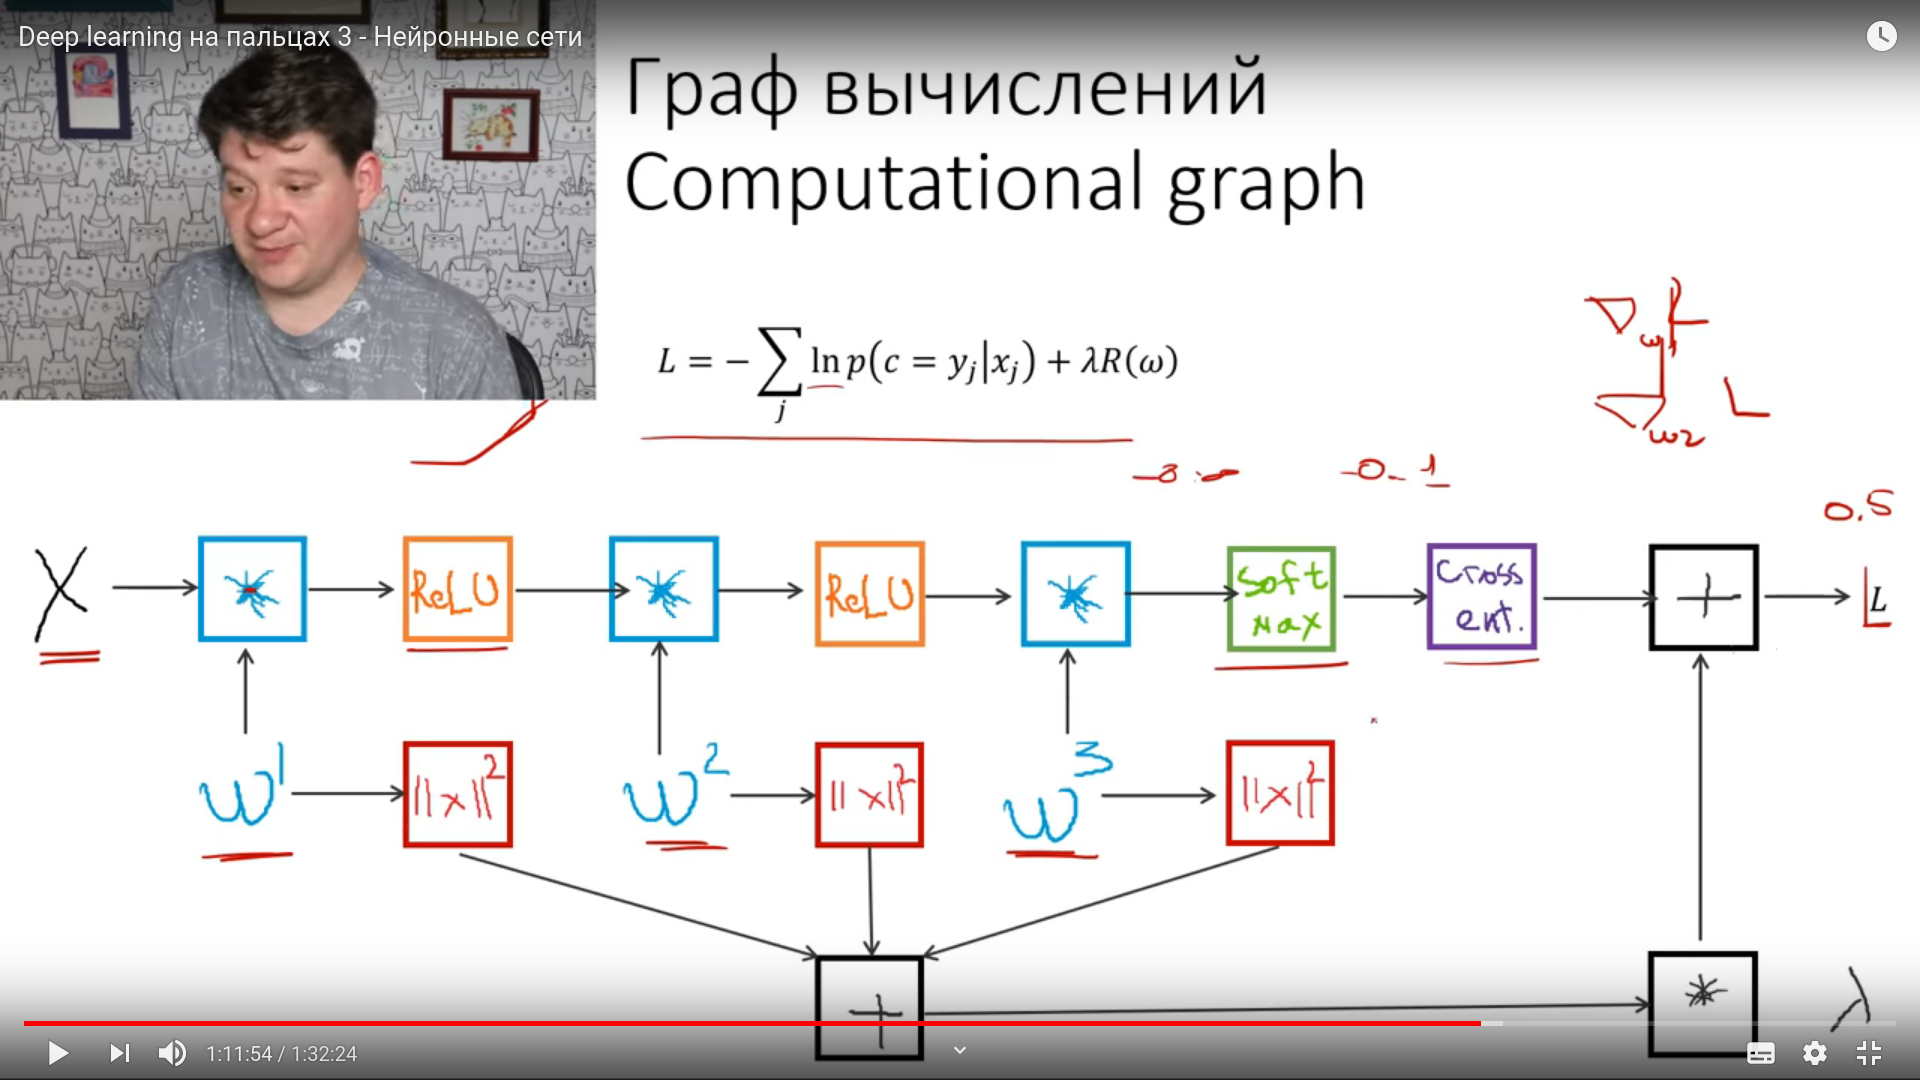 Deep learning на пальцах 3 - Нейронные сети
Граф вычислений
Computational graph
L = − ∑ ln p(c = yⱼ|xⱼ) + λR(ω)
j
ω1
ω2
L
0 - 1
0.5
X
*
ReLU
*
ReLU
*
Soft
max
Cross
ent.
+
L
ω¹
||x||²
ω²
||x||²
ω³
||x||²
+
*
λ
1:11:54 / 1:32:24